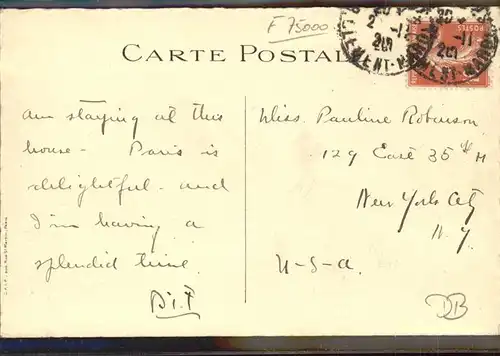 F 75000
CARTE POSTALE
POSTES
am staying at this
house - Paris is
delightful - and
I'm having a
splendid time.
Miss. Pauline Robinson
129 East 35th
New York City
N.Y.
U-S-a.
DB